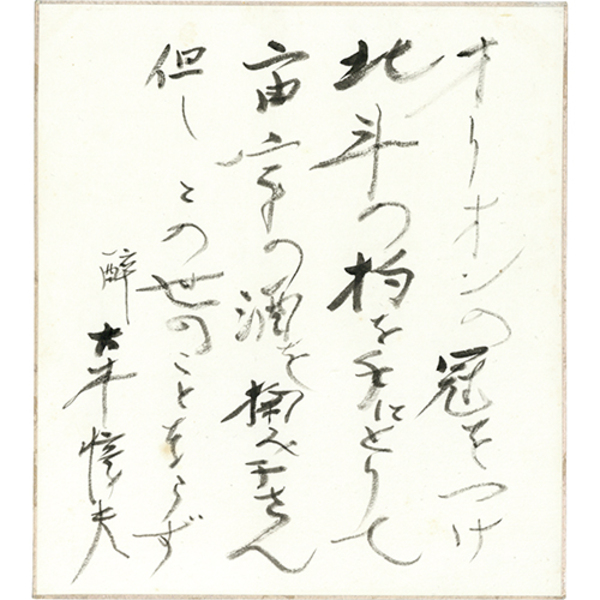 オリオンの冠をつけ
北斗の杓を手にとりて
宙宇の酒を掬み干さん
但しこの世のことならず
醉 大牟
夫